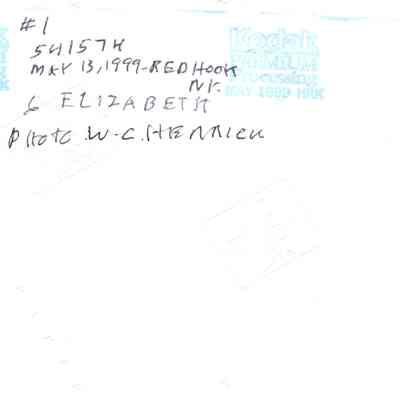 #1
54157H
MAY 13, 1999-RED HOOK
NY.
6 ELIZABETH
PHOTO W.C. HENRICH
Kodak
PREMIUM
Processing
MAY 1999